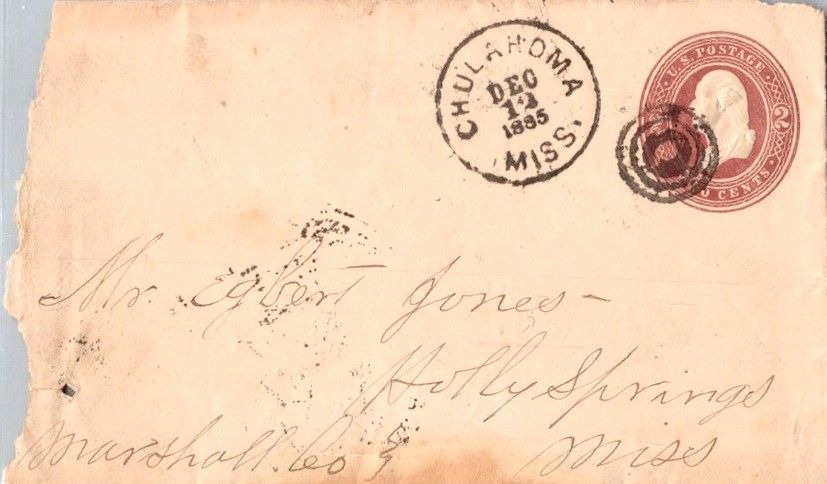 CHULAHOMA
DEC
12
1885
MISS.
U.S. POSTAGE
2
CENTS
Mr. Egbert Jones-
Holly Springs
Marshall. Co Miss